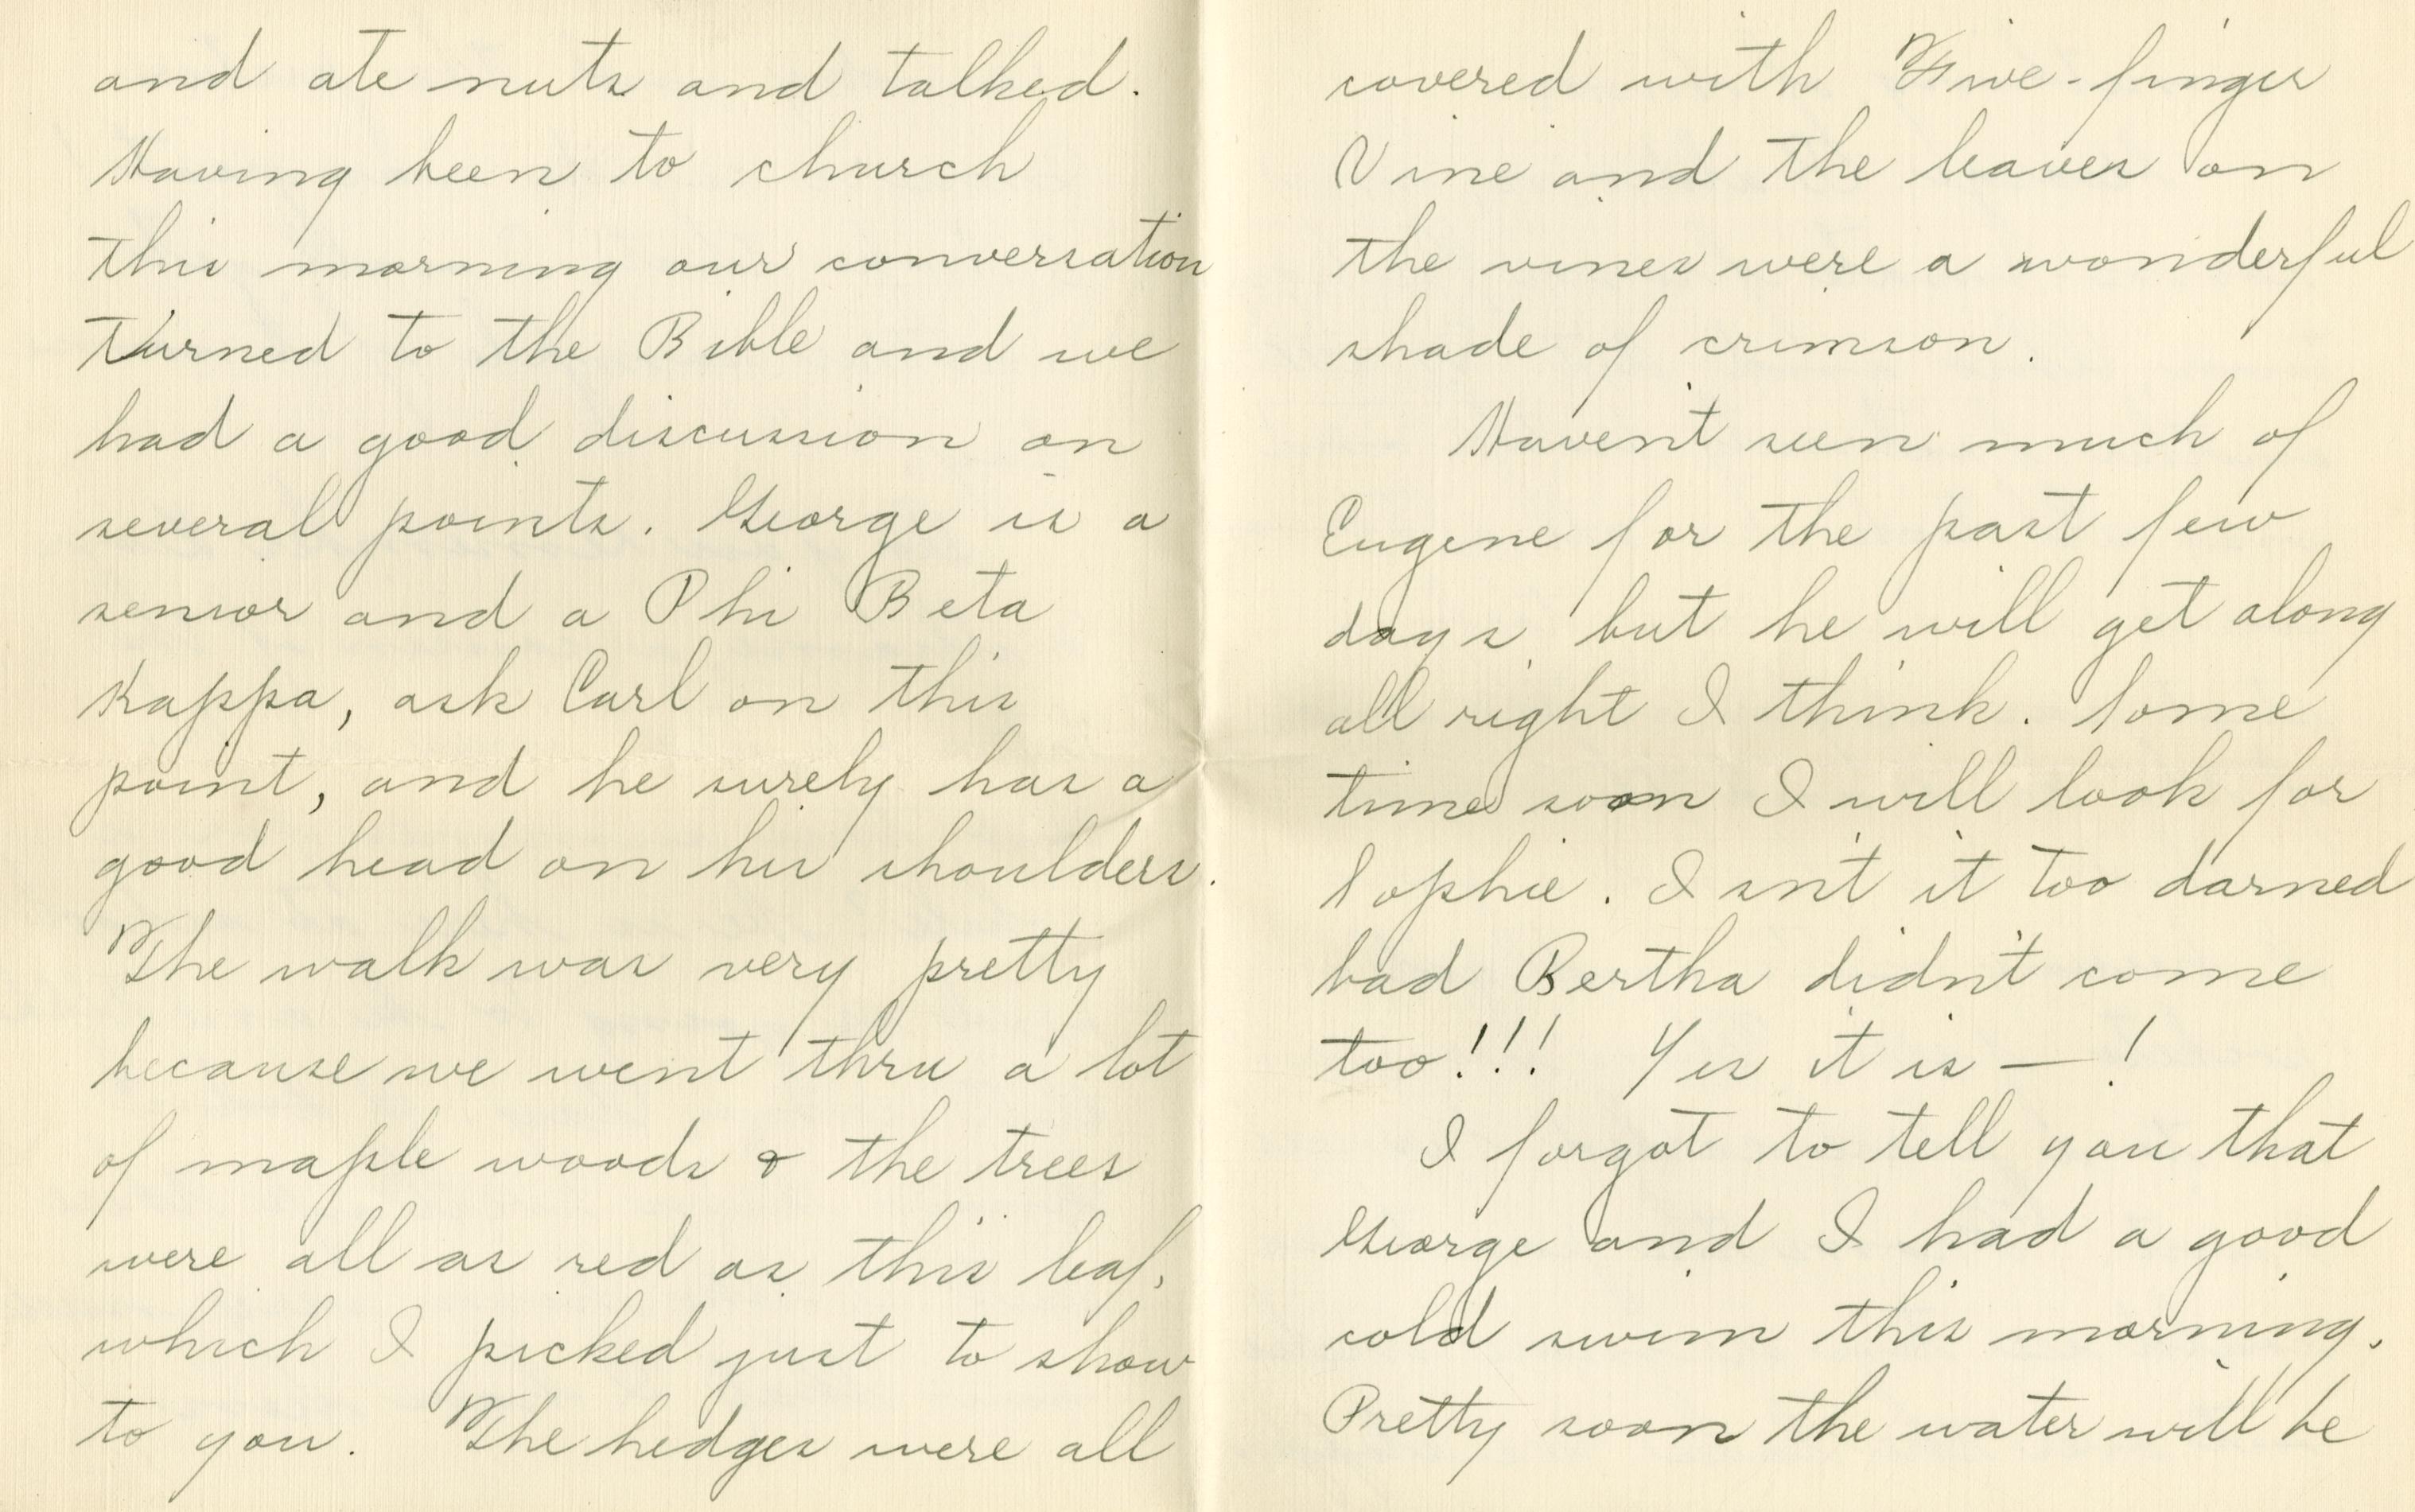 and ate nuts and talked.
Having been to church
this morning our conversation
turned to the Bible and we
had a good discussion on
several points. George is a
senior and a Phi Beta
Kappa, ask Carl on this
point, and he surely has a
good head on his shoulders.
The walk was very pretty
because we went thru a lot
of maple woods & the trees
were all as red as this leaf,
which I picked just to show
to you. The hedges were all
covered with Five-finger
Vine and the leaves on
the vines were a wonderful
shade of crimson.
Haven't seen much of
Eugene for the past few
days, but he will get along
all right I think. Some
time soon I will look for
Sophie. Isn't it too darned
bad Bertha didn't come
too!!! Yes it is — !
I forgot to tell you that
George and I had a good
cold swim this morning.
Pretty soon the water will be